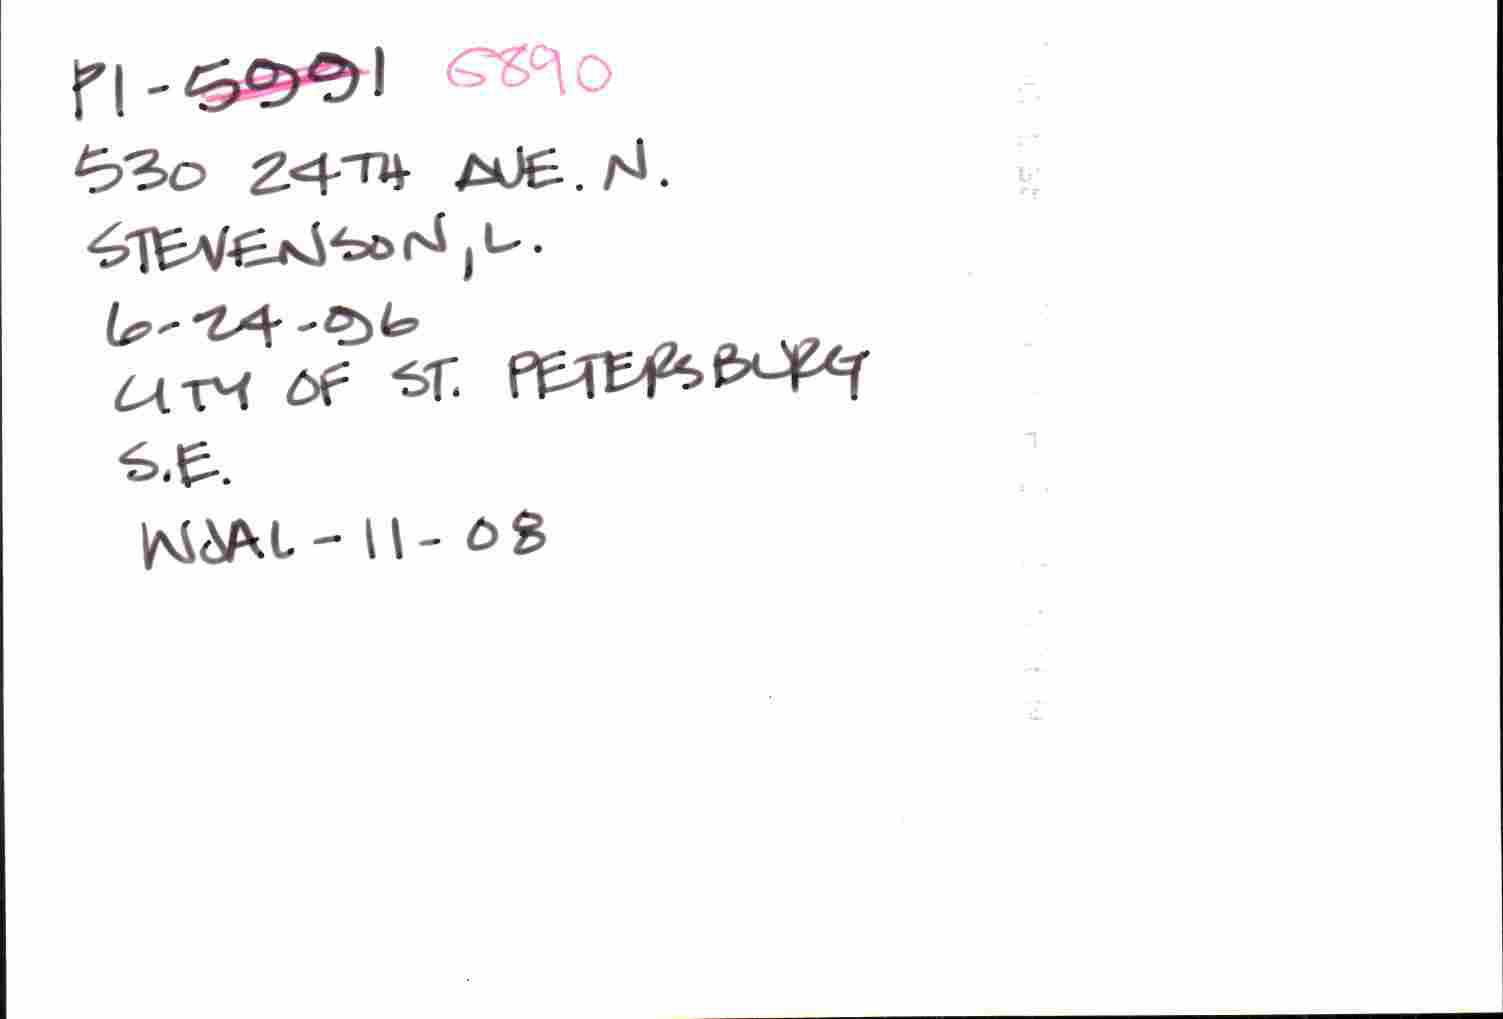 PI-5991 6890
530 24TH AVE. N.
STEVENSON, L.
6-24-96
CITY OF ST. PETERSBURG
S.E.
WJAL-11-08